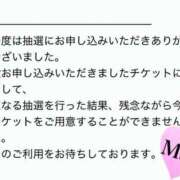 度は抽選にお申し込みいただきありが
ございました。
お申し込みいただきましたチケットに
して、
なる抽選を行った結果、残念ながら今
ケットをご用意することができません
。
のご利用をお待ちしております。
M